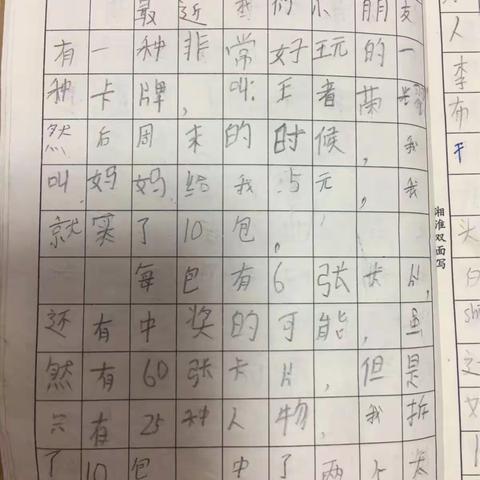 最近我们小朋友
有一种非常好玩的一
种卡牌，叫：王者荣
然后周末的时候，我
叫妈妈给我5元，我
就买了10包，
每包有6张卡片，
还有中奖的可能，虽
然有60张卡片，但是
只有25种人物，我拆
了10包 中了两个
湘淮双面写
人
李
布
干
头
白
shi
之
女